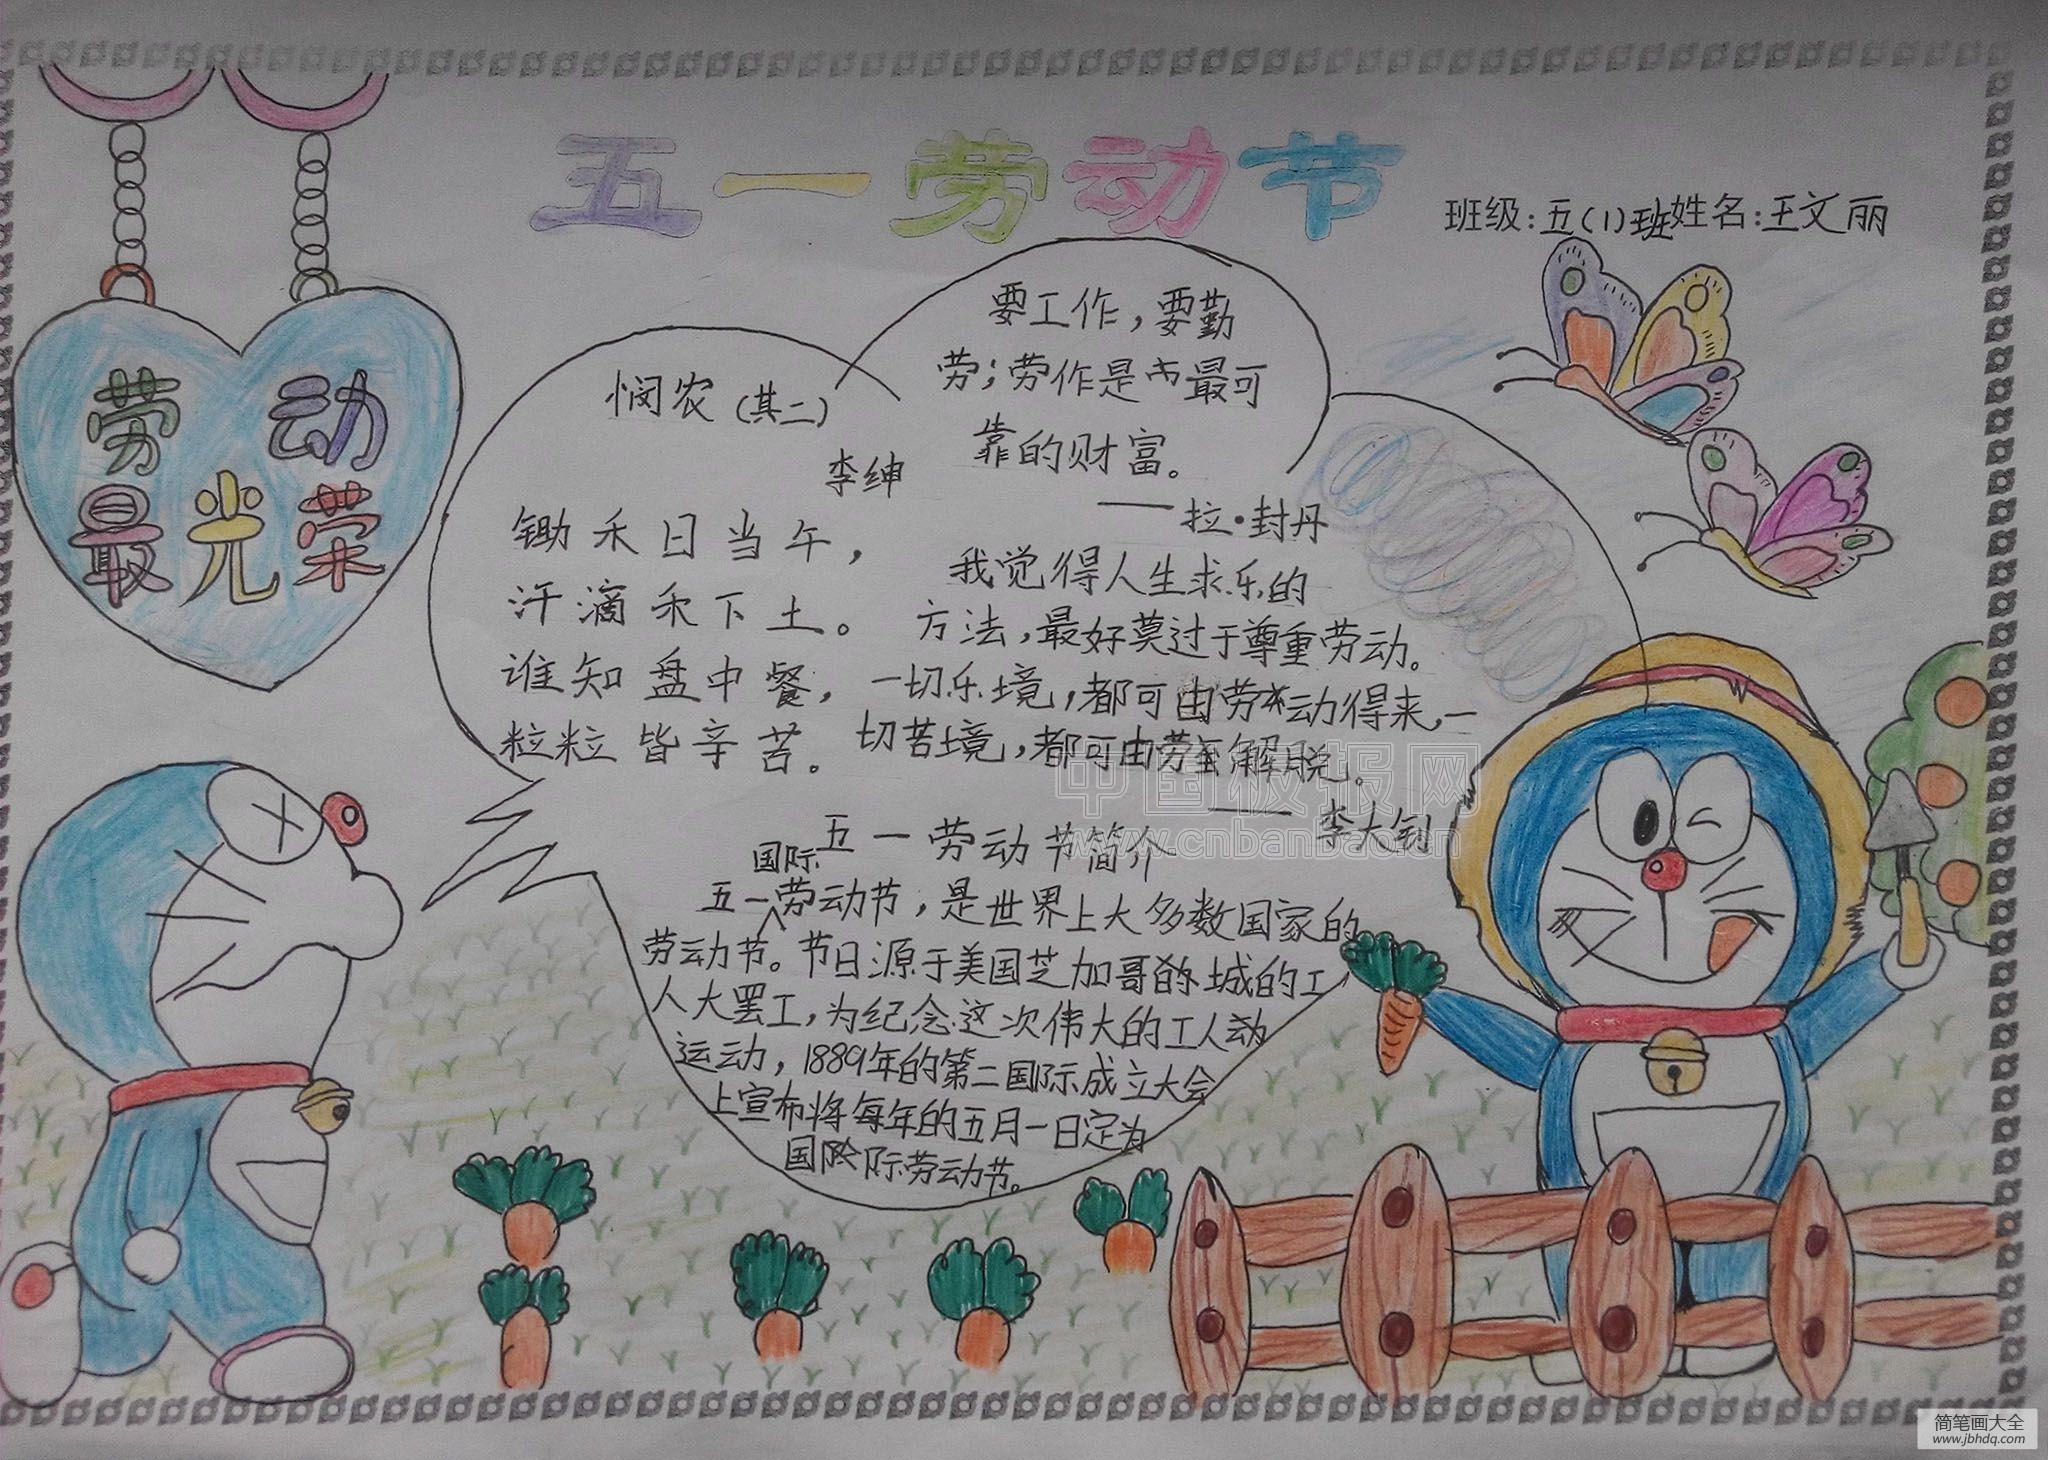 五一劳动节
班级:五(1)班姓名:王文丽
劳动
最光荣
要工作，要勤
劳；劳作是最可
靠的财富。
——拉·封丹
悯农（其二）
李绅
锄禾日当午，
汗滴禾下土。
谁知盘中餐，
粒粒皆辛苦。
我觉得人生求乐的
方法，最好莫过于尊重劳动。
一切乐境，都可由劳动得来，一
切苦境，都可由劳解脱。
——李大钊
五一劳动节简介
国际
五一劳动节，是世界上大多数国家的
劳动节。节日源于美国芝加哥的城的工
人大罢工，为纪念这次伟大的工人动
运动，1889年的第二国际成立大会
上宣布将每年的五月一日定为
国际劳动节。
中国板报网
www.cnbanbao.cn
简笔画大全
www.jbhdq.com